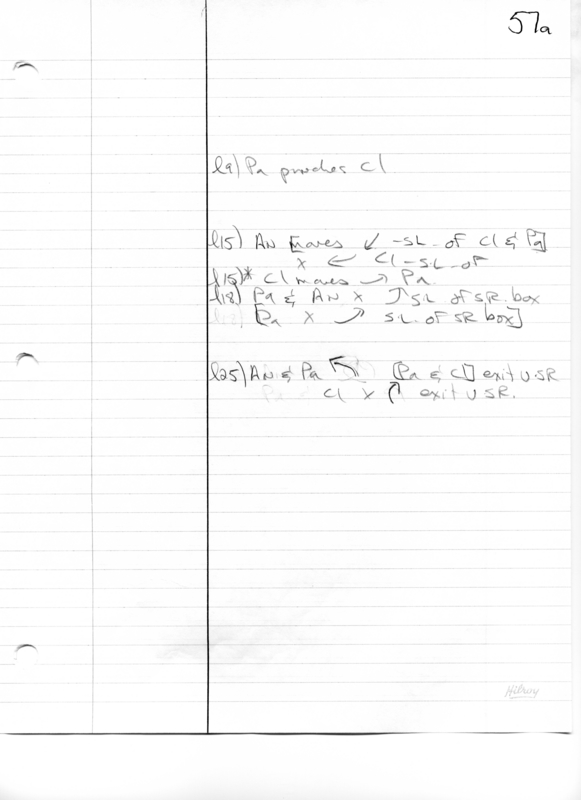 57a
l9) Pa pinches Cl
l15) AN [moves ↙ -SL of Cl & Pa]
x ← Cl -S.L. of
l15)* Cl moves → Pa
l18) Pa & AN x ↗ S.L. of S.R. box
[Pa x ↗ S.L. of SR box]
l25) AN & Pa ↖ [Pa & Cl] exit U.SR
Cl x ↗ exit U SR.
Hilroy